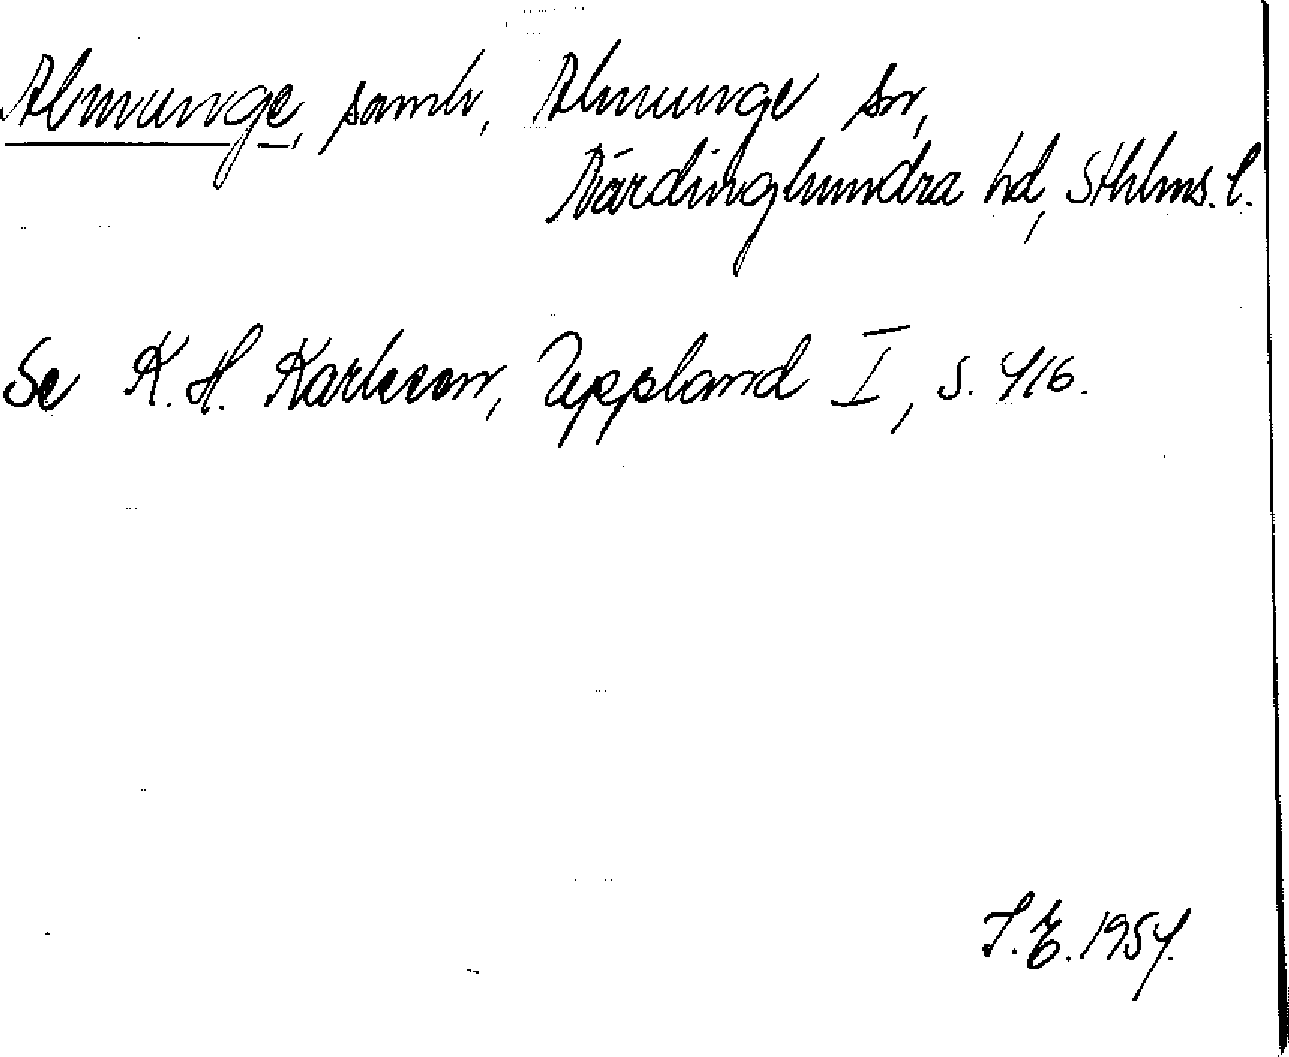 Almunge, samh, Almunge sn,
Närdinghundra hd, Sthlms. l.
Se K. H. Karlsson, Uppland I, s. 416.
S. E. 1954.